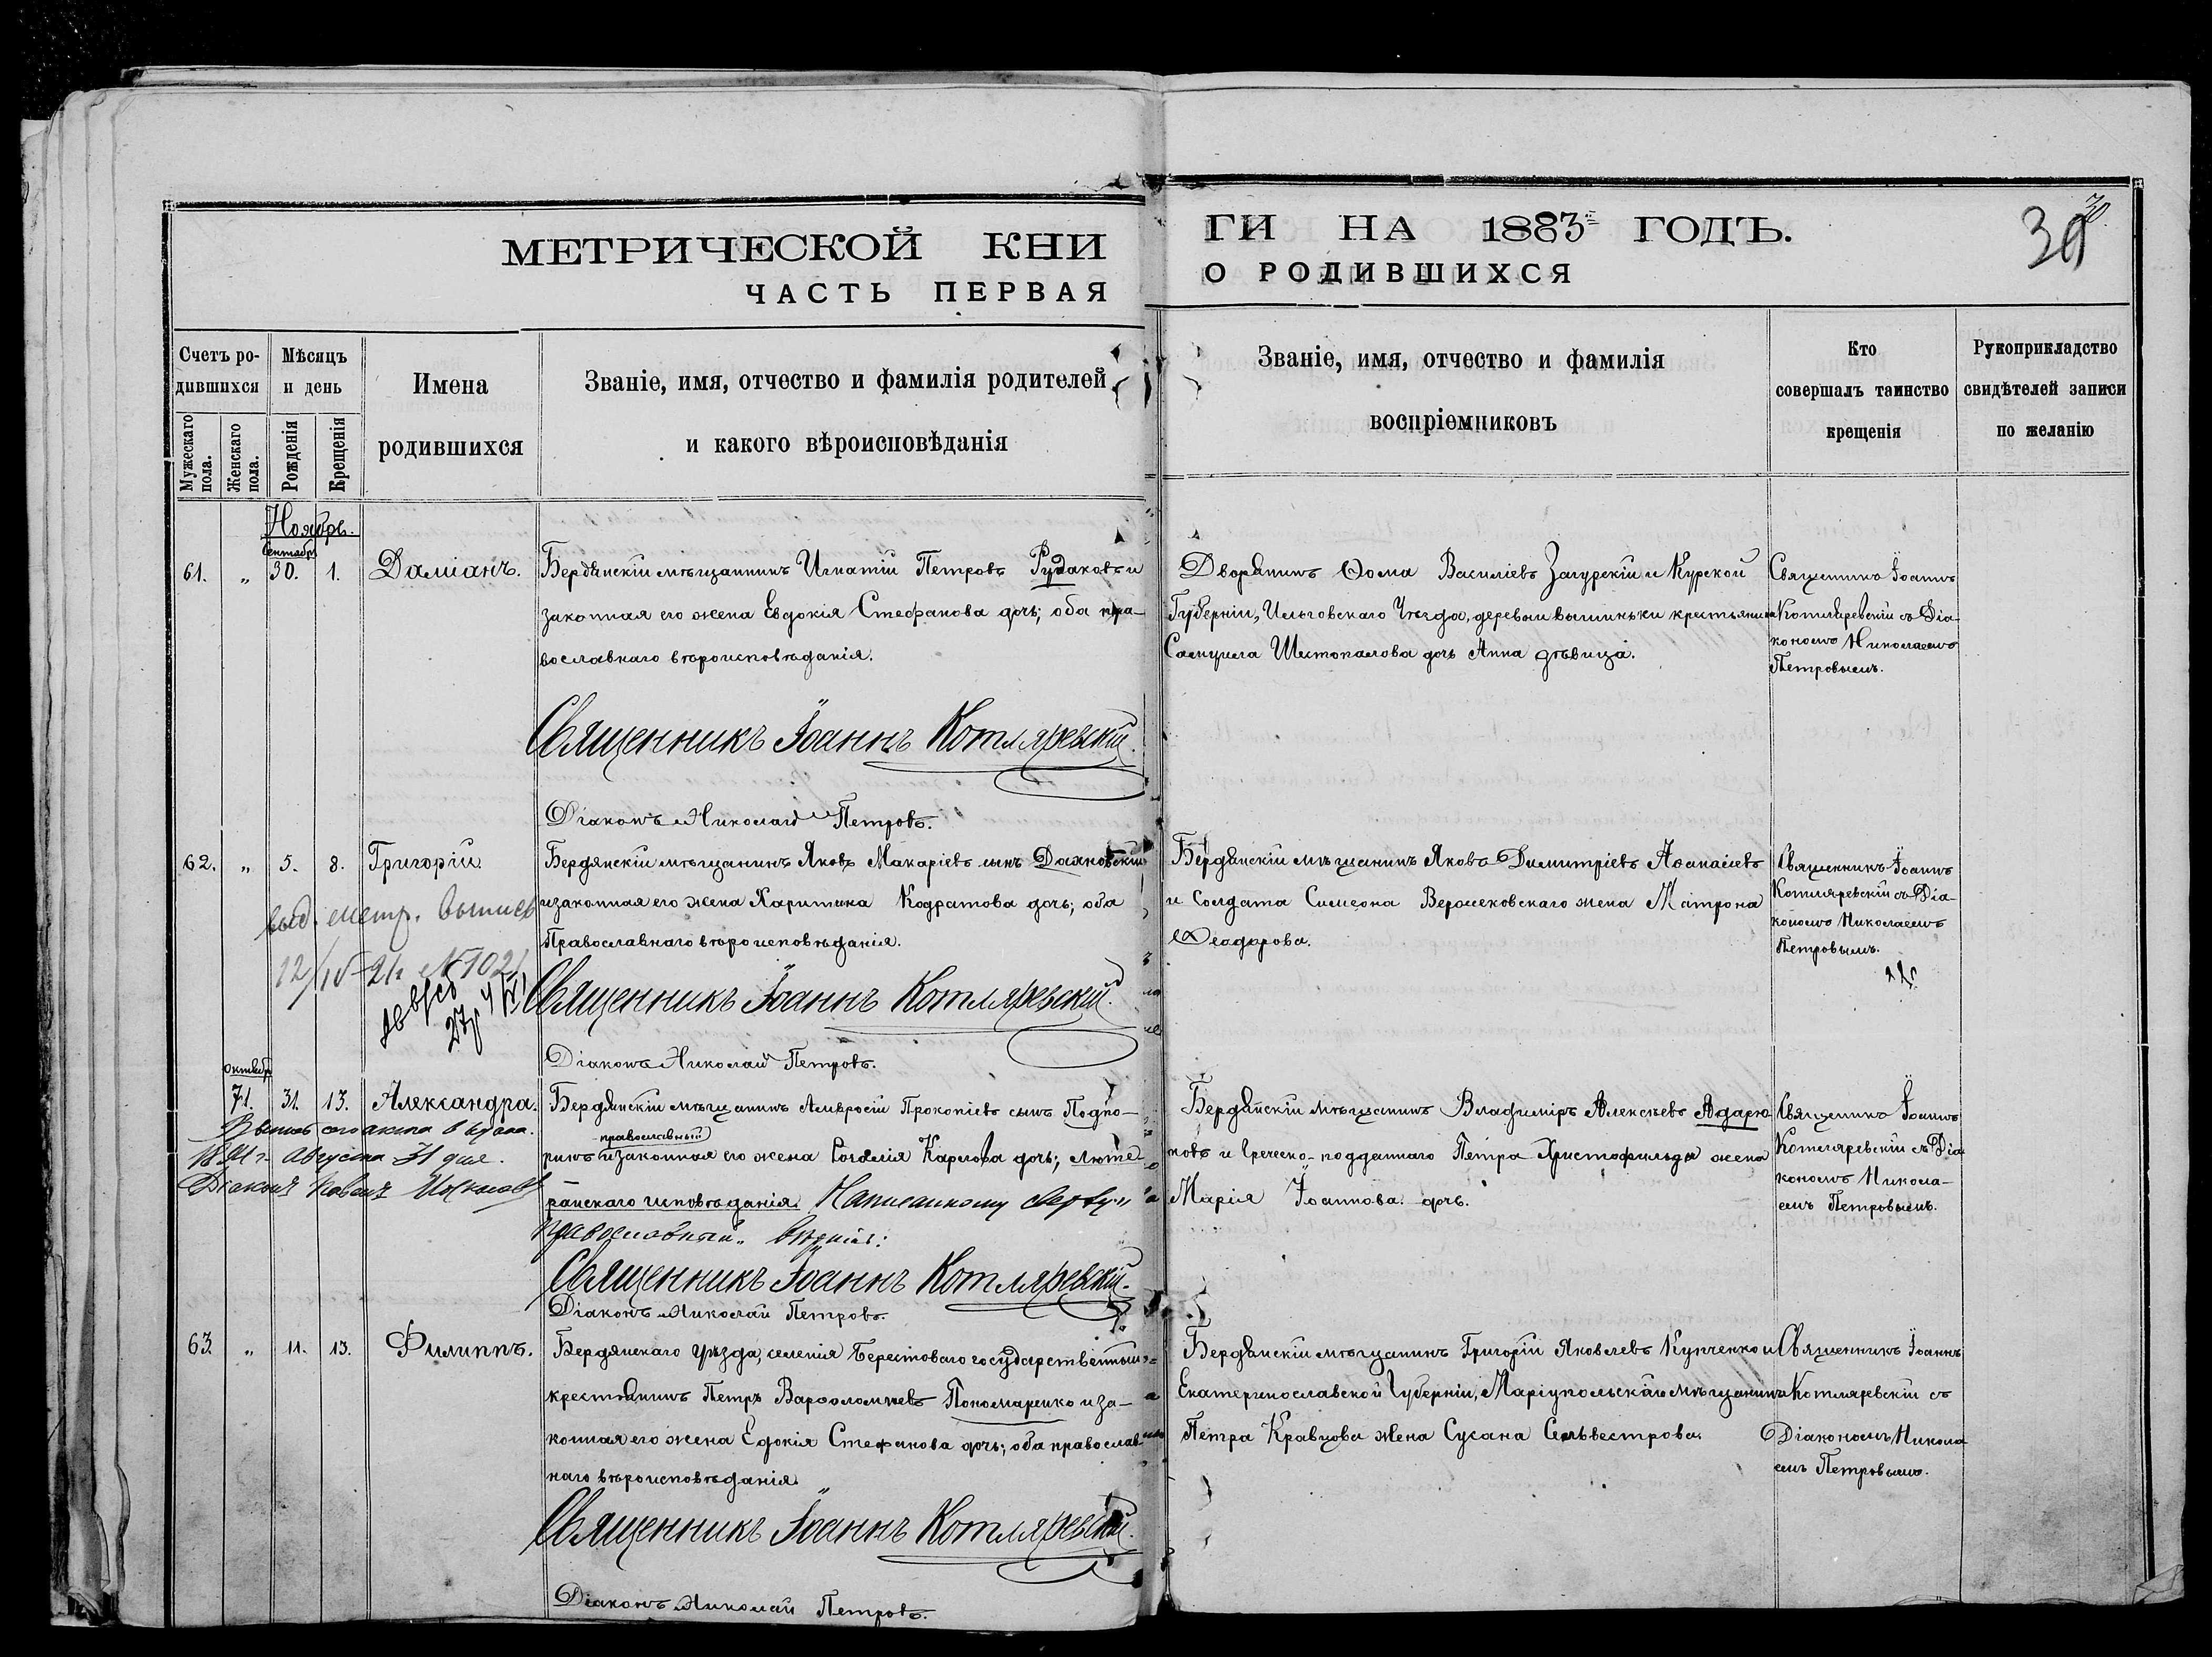 МЕТРИЧЕСКОЙ КНИ
ЧАСТЬ ПЕРВАЯ
ГИ НА 1883 ГОДЪ.
О РОДИВШИХСЯ
30
Счетъ ро-
дившихся
Мѣсяцъ
и день
Имена
родившихся
Званіе, имя, отчество и фамилія родителей
и какого вѣроисповѣданія
Званіе, имя, отчество и фамилія
воспріемниковъ
Кто
совершалъ таинство
крещенія
Рукоприкладство
свидѣтелей записи
по желанію
Мужескаго
пола.
Женскаго
пола.
Рожденія
Крещенія
Ноябрь.
Сентабр
61. „ 30. 1. Даміанъ.
Бердянскій мѣщанинъ Игнатій Петровъ Рудаковъ и
законная его жена Евдокія Стефанова дочь; оба пра-
вославнаго вѣроисповѣданія.
Священникъ Іоаннъ Котляревскій.
Діаконъ Николай Петровъ.
Дворянинъ Ѳома Василіевъ Загурскій и Курской
Губерніи, Уѣзда, деревни крестьянина
Самуила Шестопалова дочь Анна дѣвица.
Священникъ Іоаннъ
Котляревскій съ Діа-
кономъ Николаемъ
Петровымъ.
62. „ 5. 8. Григорій
выд. метр. выпись
Бердянскій мѣщанинъ Яковъ Макаріевъ сынъ
и законная его жена Харитина Кодратова дочь; оба
Православнаго вѣроисповѣданія.
Священникъ Іоаннъ Котляревскій.
Діаконъ Николай Петровъ.
Бердянскій мѣщанинъ Яковъ Димитріевъ Аѳанасіевъ
и Солдата Симеона жена Матрона
Ѳеодорова.
Священникъ Іоаннъ
Котляревскій съ Діа-
кономъ Николаемъ
Петровымъ.
октябр
71. 31. 13. Александра.
Выпись сего акта выдана.
Августа 31 дня.
Діаконъ
Бердянскій мѣщанинъ Амвросій Прокопіевъ сынъ Подпо-
православный
ринъ и законная его жена Розалія Карлова дочь; люте-
ранскаго исповѣданія. Написанному сверху „
православный„ вѣрить:
Священникъ Іоаннъ Котляревскій.
Діаконъ Николай Петровъ.
Бердянскій мѣщанинъ Владиміръ Алексѣевъ Адарю-
ковъ и Греческо-подданнаго Петра Христофильда жена
Марія Іоаннова дочь.
Священникъ Іоаннъ
Котляревскій съ Діа
кономъ Никола-
емъ Петровымъ.
63. „ 11. 13. Филиппъ.
Бердянскаго уѣзда, селенія Берестоваго государственный
крестьянинъ Петръ Варѳоломѣевъ Пономаренко и за-
конная его жена Едокія Стефанова дочь; оба православ
наго вѣроисповѣданія
Священникъ Іоаннъ Котляревскій.
Діаконъ Николай Петровъ.
Бердянскій мѣщанинъ Григорій Яковлевъ Купченко и
Екатеринославской Губерніи, Маріупольскаго мѣщанина
Петра Кравцова жена Сусана Селѣвестрова.
Священникъ Іоаннъ
Котляревскій съ
Діакономъ Никола
емъ Петровымъ.